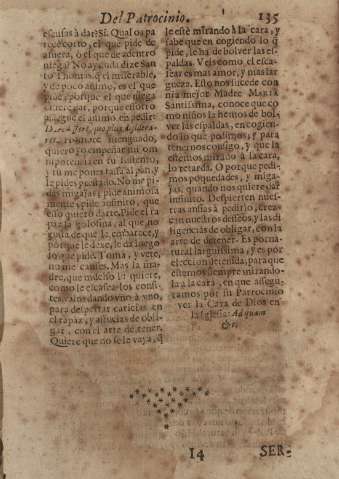 Del Patrocinio. 135
escusas à dar? Si. Qual os pa-
rece corto, el que pide de
afuera, ò el que de adentro
niega? No ay duda dize San-
to Thomàs, q̃ el miserable,
y de poco animo, es el que
pide, porque el que niega
porque el animo en pedir:
hombre menguado,
quiero yo empeñar mi om-
nipotencia en tu sustento,
y tu me pones tassa al pan, y
le pides pessado. No me pi-
das migajas; pide animosa
mente, pide infinito, que
esso quiero darte. Pide el ra
paz la golosina, al que no
gusta de que le embarace, y
porque le dexe, le da luego
lo que pide. Toma, y vete,
no me canses. Mas la ma-
dre, que mucho le quiere,
como le escasea los confi-
tes, vàlos dando vno à vno,
para despertar caricias en
el rapàz, y astucias de obli-
gar, con el arte de tener.
Quiere que no se le vaya, q̃
le estè mirando à la cara, y
sabe que en cogiendo lo q̃
pide, le ha de bolver las es-
paldas. Veis como el esca-
sear es mas amor, y mas lar-
gueza. Esto nos sucede con
nuestra mejor Madre MARIA
Santissima, conoce que co
mo niños la hemos de bol-
ver las espaldas, en cogien-
do lo que pedimos, y para
tenernos consigo, y que la
estemos mirando à la cara,
lo retarda. O porque pedi-
mos poquedades, y miga-
jas, quando nos quiere dar
infinito. Despierten nues-
tras ansias à pedirlo, crez-
can nuestros deseos, y las di
ligencias de obligar, con la
arte de detener. Es por na-
tural larguissima, y es por
eleccion detenida, para que
estemos siempre mirando-
la à la cara, en que assegu-
ramos por su Patrocinio
ver la Cara de Dios en
la Iglesia: Ad quam
&c.
I4 SER-